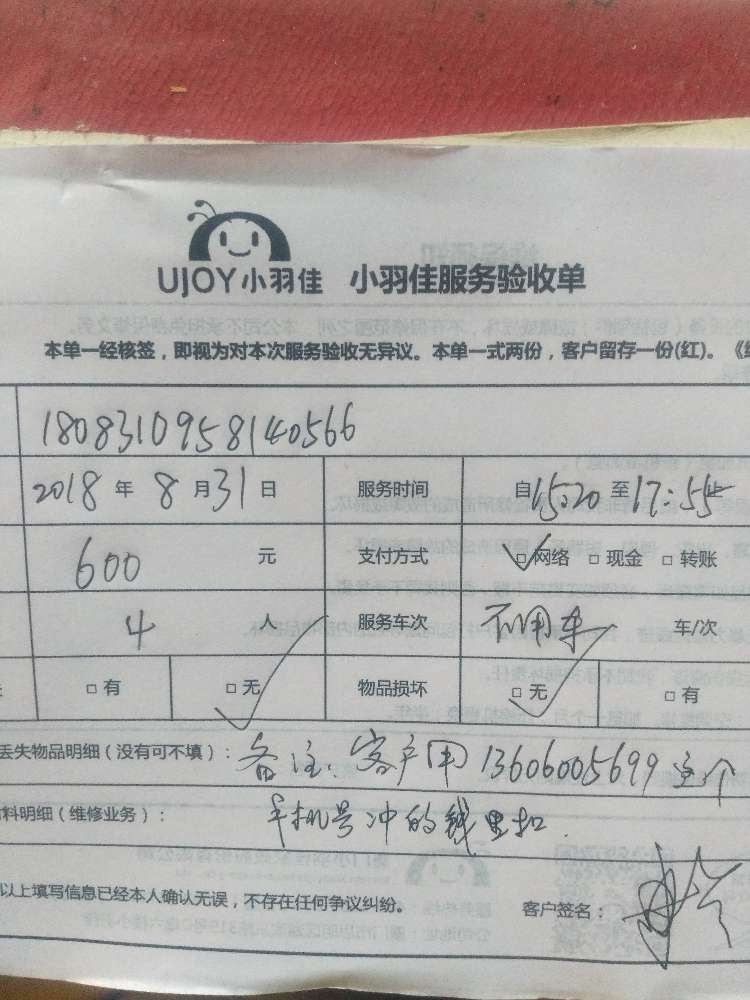 UJOY小羽佳 小羽佳服务验收单
本单一经核签，即视为对本次服务验收无异议。本单一式两份，客户留存一份(红)。
1808310958140566
2018 年 8 月 31 日 服务时间 自 15:20 至 17:55止
600 元 支付方式 网络 □ 现金 □ 转账
4 人 服务车次 不用车 车/次
□ 有 □ 无 物品损坏 □ 无 □ 有
丢失物品明细（没有可不填）： 备注：客户用 13606005699 这个
料明细（维修业务）： 手机号冲的钱里扣.
以上填写信息已经本人确认无误，不存在任何争议纠纷。 客户签名：